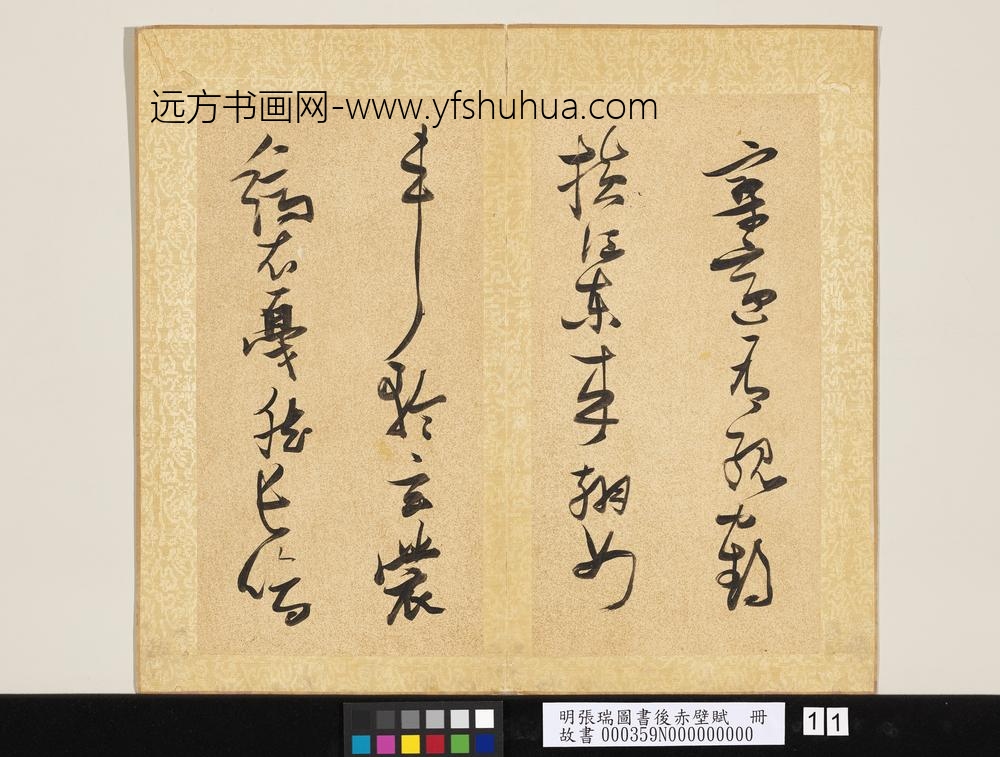 远方书画网-www.yfshuhua.com
寥適有孤鶴
橫江東來翅如
車輪玄裳
縞衣戛然長鳴
明張瑞圖書後赤壁賦 冊
故書 000359N000000000
11